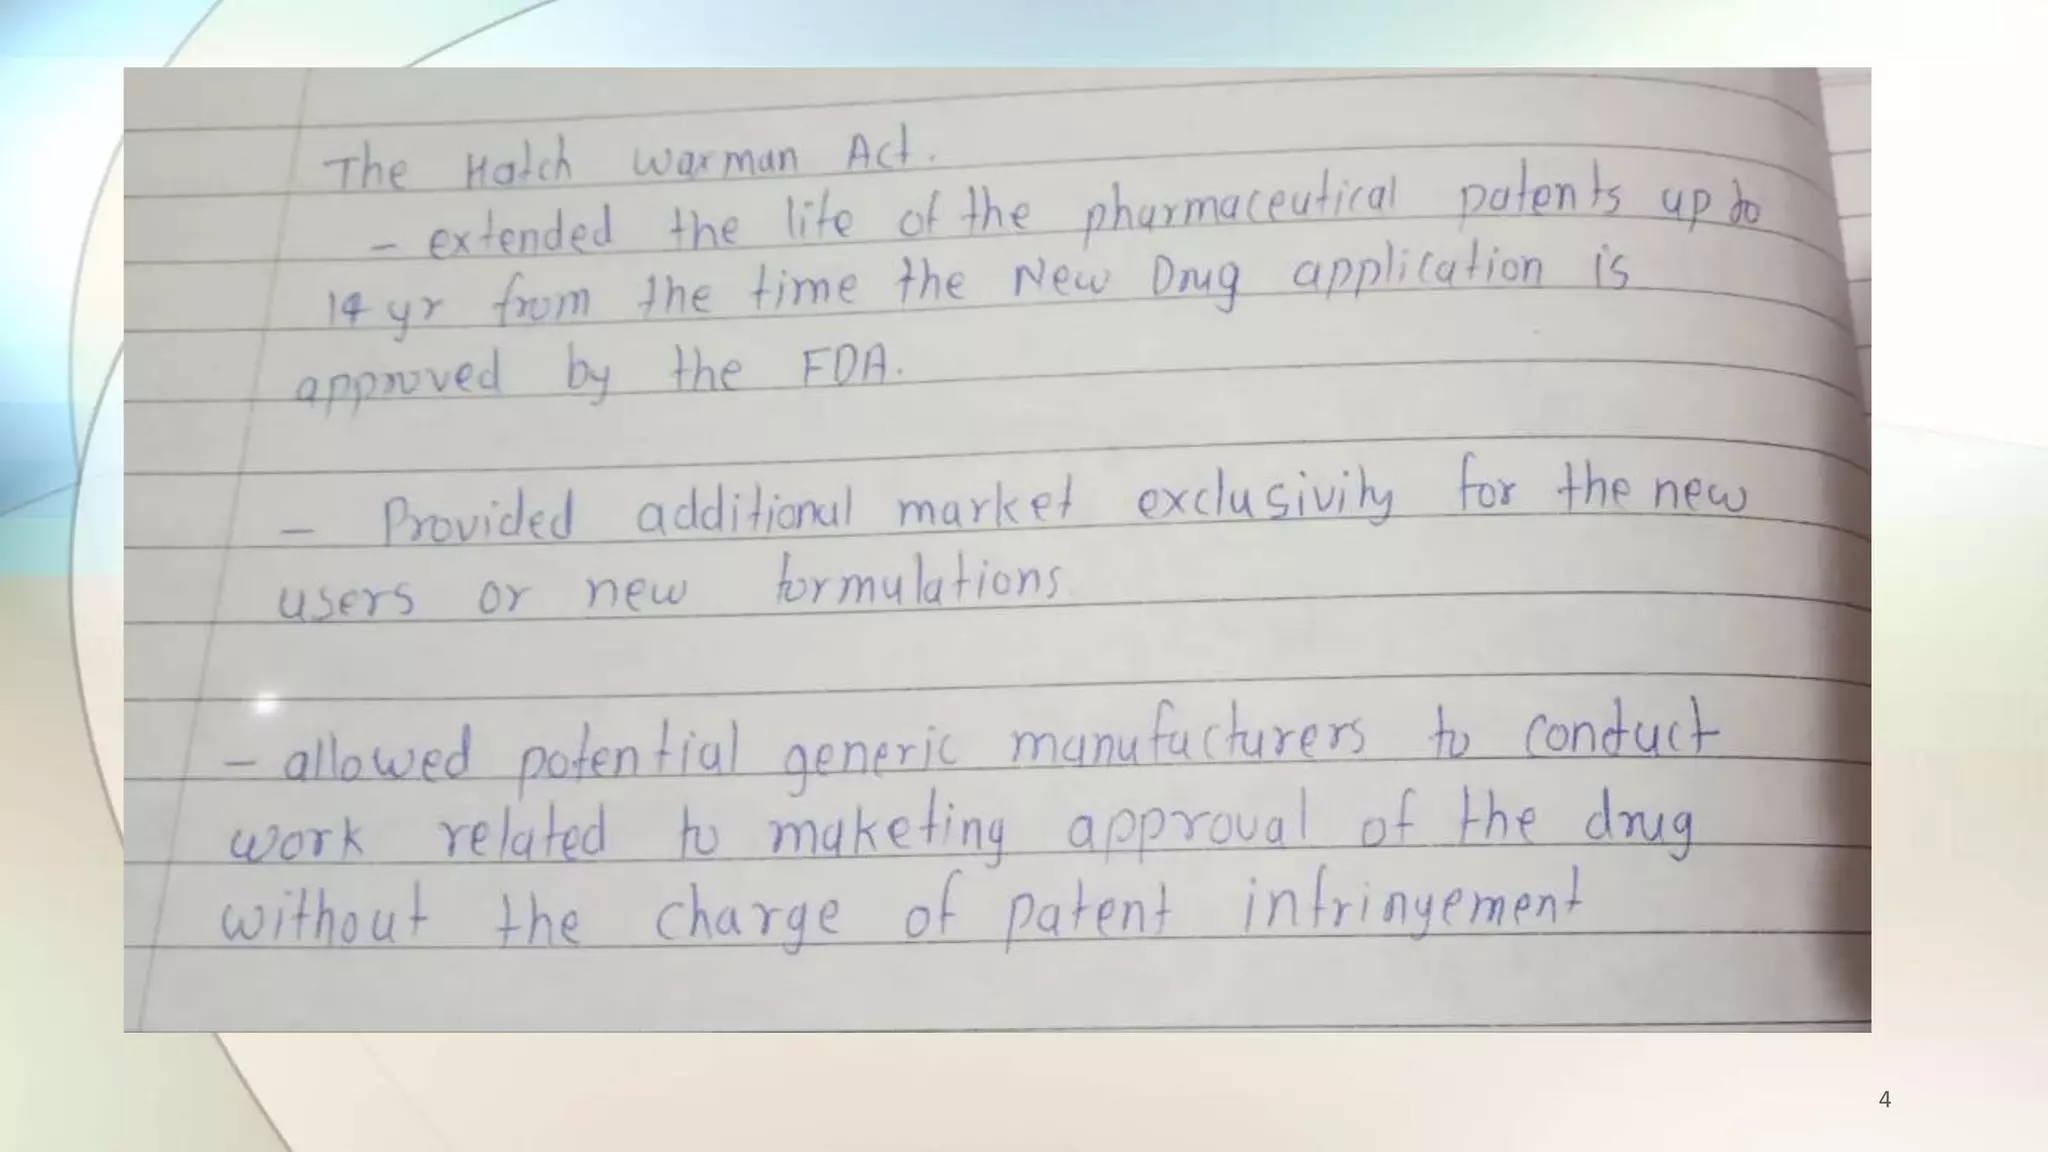 The Hatch Waxman Act.
- extended the life of the pharmaceutical patents up to
14 yr from the time the New Drug application is
approved by the FDA.
- Provided additional market exclusivity for the new
users or new formulations
- allowed potential generic manufacturers to conduct
work related to maketing approval of the drug
without the charge of patent infringement
4